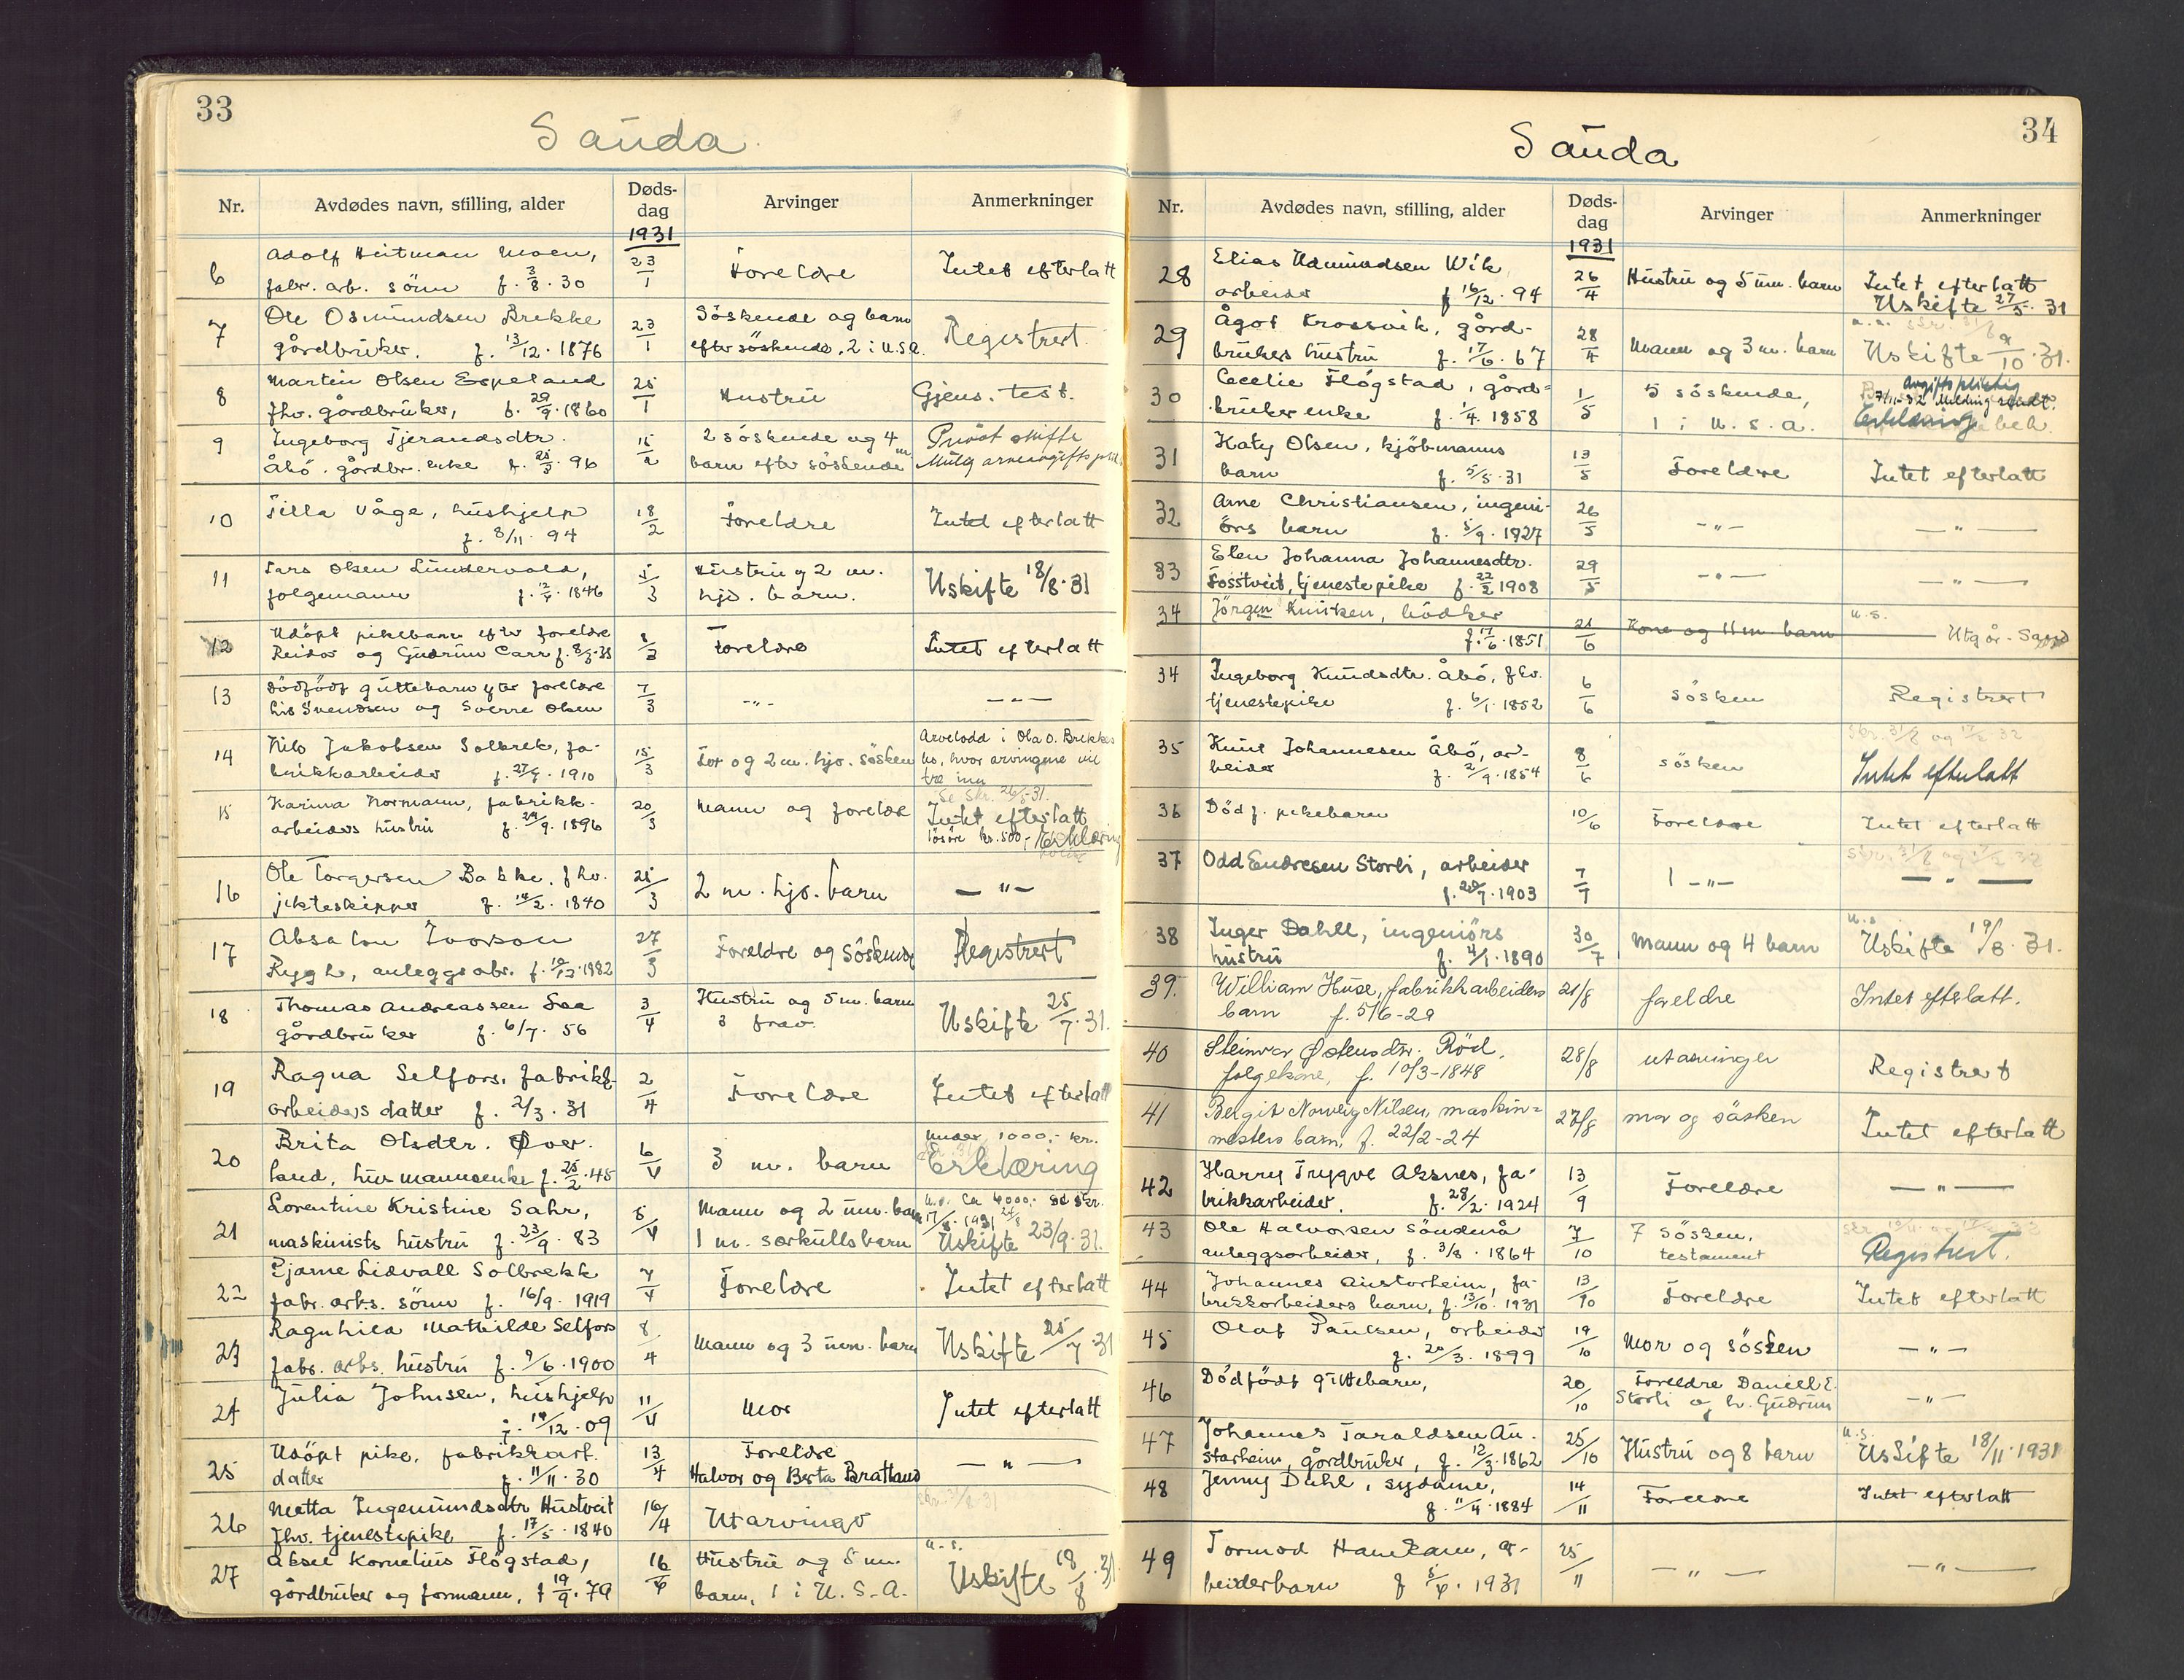 33
Sauda
Nr.
Avdødes navn, stilling, alder
Døds-
dag
Arvinger
Anmerkninger
1931
6
Adolf Heitman Moen,
fabr. arb. sönn f. 3/8. 30
23/1
Foreldre
Intet efterlatt
7
Ole Osmundsen Brekke
gårdbruker. f. 13/12. 1876
23/1
Söskende og barn
efter söskende, 2 i U.S.A.
Registrert.
8
Martin Olsen Espeland
fhv. gårdbruker, f. 29/9. 1860
25/1
Hustru
Gjens. test.
9
Ingeborg Tjerandsdtr.
Åbö. gårdbr. enke f. 25/3. 96
15/2
2 söskende og 4
barn efter söskende
Privat skifte
Mulig arveavgiftspl.
10
Tilla Våge, hushjelp
f. 8/11. 94
18/2
Foreldre
Intet efterlatt
11
Lars Olsen Sundervold,
folgemann f. 12/4. 1846
5/3
Hustru og 2 m.
hjs. barn.
Uskifte 18/8. 31
12
Udöpt pikebarn efter foreldre
Reidar og Gudrun Carr f. 8/3. 31
8/3
Foreldre
Intet efterlatt
13
Dödfödt guttebarn efter foreldre
Lis Svendsen og Sverre Olsen
7/3
-"-
-"-
14
Nils Jakobsen Solbrek, fa-
brikkarbeider f. 27/7. 1910
15/3
Far og 2 m. hjs. sösken
Arvelodd i Ola O. Brekkes
bo, hvor arvingene vil
tre inn
15
Karina Normann, fabrikk-
arbeiders hustru f. 29/9. 1896
20/3
Mann og foreldre
Se skr. 26/5-31.
Intet efterlatt
lösöre kr. 500,- Erklæring
16
Ole Torgersen Bakke, fhv.
jekteskipper f. 14/2. 1840
25/3
2 m. hjs. barn
-"-
17
Absalon Ivarson
Rygh, anleggsarb. f. 10/12. 1882
27/3
Foreldre og Söskende
Registrert
18
Thomas Andreassen Saa
gårdbruker f. 6/7. 56
3/4
Hustru og 5 m. barn
3 frav.
Uskifte 25/7. 31.
19
Ragna Selfors, fabrikk-
arbeiders datter f. 2/3. 31
2/4
Foreldre
Intet efterlatt
20
Brita Olsdtr. Øver-
land, husmannsenke f. 25/2. 45
6/4
3 m. barn
under 1000,- kr.
Erklæring
21
Lorentine Kristine Sahr,
maskinists hustru f. 23/9. 83
5/4
Mann og 2 um. barn
1 m. særkullsbarn
u.s. Ca 4000,- se skr.
17/8. 1931
Uskifte 23/9. 31.
22
Bjarne Lidvall Solbrekk
fabr. arbs. sönn f. 16/9. 1919
7/4
Foreldre
Intet efterlatt
23
Ragnhild Mathilde Selfors
fabr. arbs. hustru f. 9/6. 1900
8/4
Mann og 3 um. barn
Uskifte 25/7. 31
24
Julia Johnsen, hushjelp
f. 14/12. 09
11/4
Mor
Intet efterlatt
25
Udöpt pike, fabrikkarb.
datter f. 11/11. 30
13/4
Foreldre
Halvor og Berta Brattland
-"-
26
Metta Ingemundsdtr Hustveit
fhv. tjenestepike f. 17/5. 1840
16/4
Utarvinger
skr. 31/8 31
27
Aksel Kornelius Flögstad,
gårdbruker og formann, f 19/9. 79
16/4
Hustru og 5 um.
barn, 1 i U.S.A.
u.s.
Uskifte 18/8. 31
34
Sauda
Nr.
Avdødes navn, stilling, alder
Døds-
dag
Arvinger
Anmerkninger
1931
28
Elias Udmundsen Wik
arbeider f 16/12. 94
26/4
Hustru og 5 um. barn
Intet efterlatt
Uskifte 27/5. 31
29
Ågot Krossvik, gård-
brukers hustru f. 17/6. 67
28/4
Mann og 3 m. barn
Uskifte 9/10. 31.
30
Cecelie Flögstad, gård-
bruker enke f. 1/4. 1858
1/5
5 söskende,
1 i U.S.A.
Avgiftspliktig
7/11-32 Melding sendt.
Erklæring
31
Katy Olsen, kjöbmanns
barn f. 5/5. 31
13/5
Foreldre
Intet efterlatt
32
Arne Christiansen, ingeni-
örs barn f. 5/9. 1927
26/5
-"-
-"-
33
Elen Johanna Johannesdtr.
Fosstveit, tjenestepike f. 22/2 1908
29/5
-"-
-"-
34
Jörgen Knutsen, bödker
f. 17/6. 1851
21/6
Kone og 11 m. barn
u.s.
Utgår - Sand
34
Ingeborg Knudsdtr. Åbö, fhv.
tjenestepike f. 6/1. 1852
6/6
sösken
Registrert
35
Knut Johannesen Åbö, ar-
beider f. 2/9. 1854
8/6
sösken
Intet efterlatt
36
Död f. pikebarn
10/6
Foreldre
Intet efterlatt
37
Odd Endresen Storli, arbeider
f. 20/7. 1903
7/7
1 -"-
-"-
38
Inger Dahll, ingeniörs
hustru f. 4/1. 1890
30/7
Mann og 4 barn
u.s
Uskifte 19/8. 31.
39.
William Huse, fabrikkarbeiders
barn f. 5/6-29
21/8
foreldre
Intet efterlatt.
40
Steinvor Østensdtr. Röd,
folgekone, f. 10/3-1848
28/8
utarvinger
Registrert
41
Bergit Norveig Nilsen, maskin-
mesters barn, f. 22/2-24
27/8
mor og sösken
Intet efterlatt
42
Harry Trygve Aksnes, fa-
brikkarbeider. f. 28/2. 1924
13/9
Foreldre
-"-
43
Ole Halvorsen Söndenå
anleggsarbeider, f. 3/8. 1864
7/10
7 Sösken,
testament
Registrert.
44
Johannes Austarheim, fa-
brikkarbeiders barn, f. 13/10. 1931
13/10
Foreldre
Intet efterlatt
45
Olaf Paulsen, arbeider
f. 20/3. 1899
19/10
Mor og sösken
-"-
46
Dödfödt guttebarn,
20/10
Foreldre Daniel E.
Storli og h. Gudrun
-"-
47
Johannes Taraldsen Au-
starheim, gårdbruker, f. 12/3. 1862
25/10
Hustru og 8 barn
u.s.
Uskifte 18/11. 1931
48
Jenny Dahl, sydame,
f. 11/4. 1884
14/11
Foreldre
Intet efterlatt
49
Tormod Hamkam, ar-
beiderbarn f 5/4. 1931
25/11
-"-
-"-